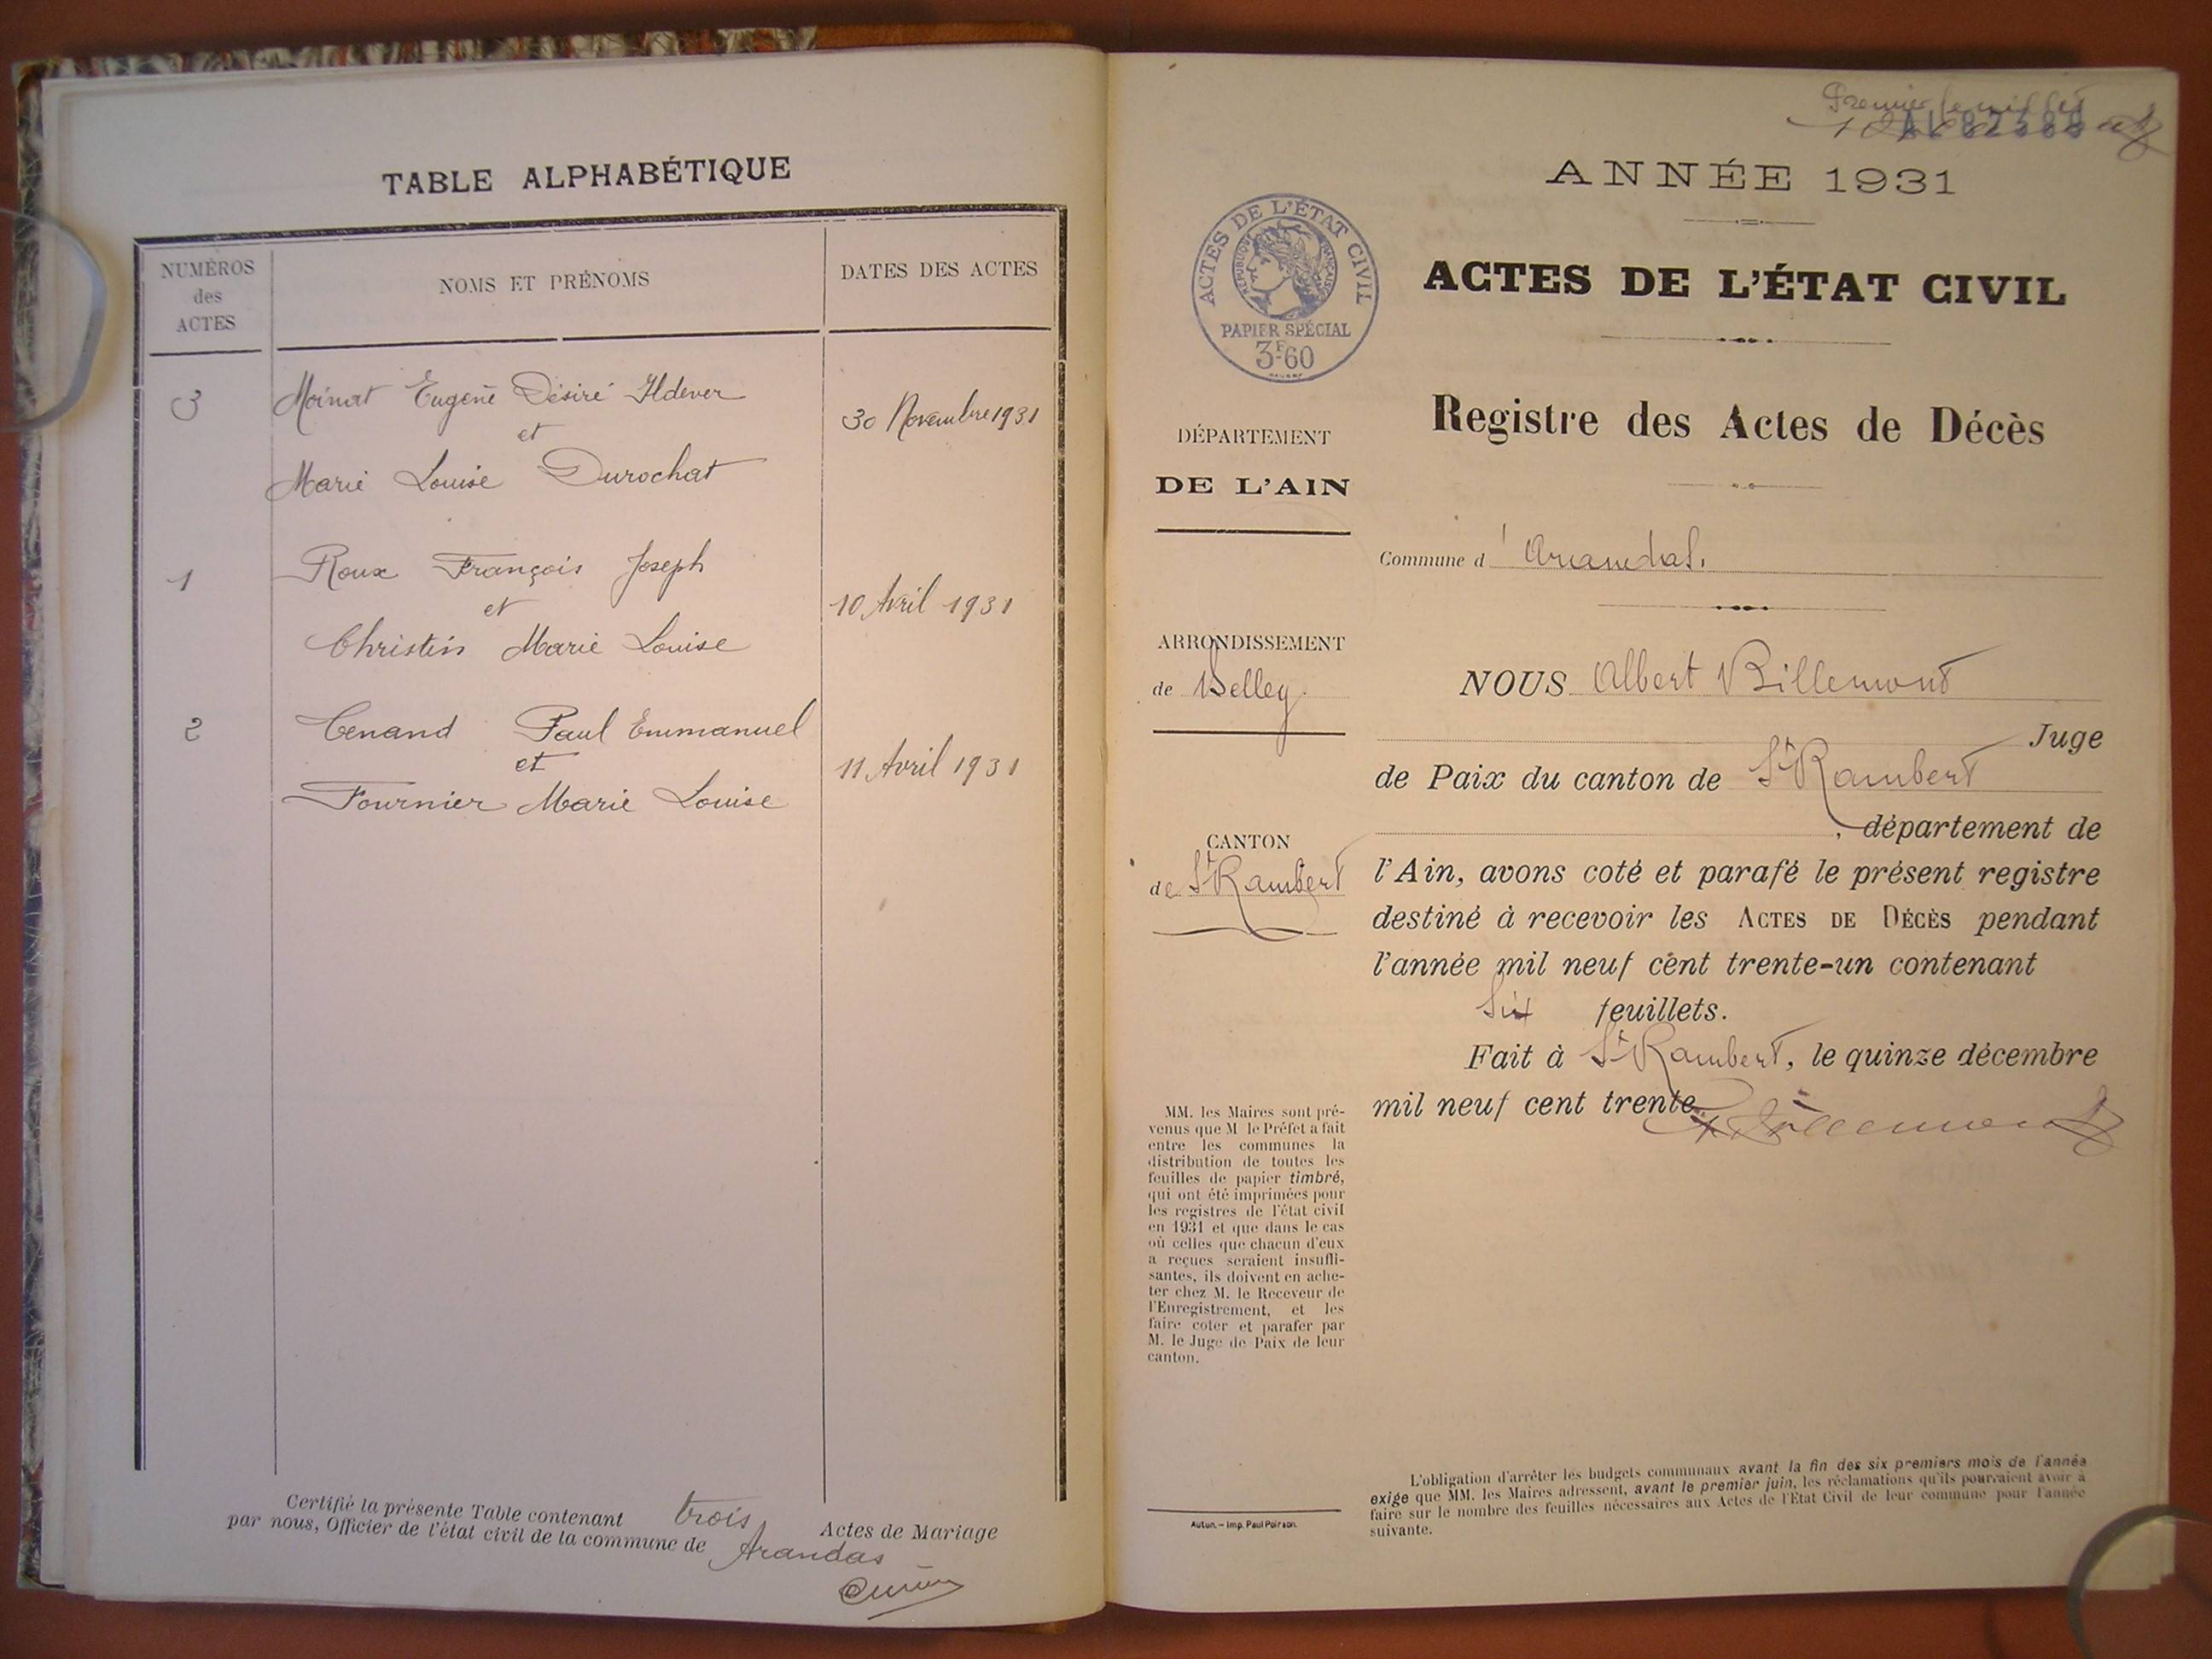 TABLE ALPHABÉTIQUE
NUMÉROS
des
ACTES
NOMS ET PRÉNOMS
DATES DES ACTES
3
Moinat Eugène Désiré
et
Marie Louise Durochat
30 Novembre 1931
1
Roux François Joseph
et
Christin Marie Louise
10 Avril 1931
2
Tenand Paul Emmanuel
et
Fournier Marie Louise
11 Avril 1931
Certifié la présente Table contenant trois Actes de Mariage
par nous, Officier de l'état civil de la commune de Arandas
Premier feuillet
ANNÉE 1931
ACTES DE L'ÉTAT CIVIL
RÉPUBLIQUE FRANÇAISE
PAPIER SPÉCIAL
3F60
ACTES DE L'ÉTAT CIVIL
Registre des Actes de Décès
DÉPARTEMENT
DE L'AIN
Commune d'Arandas.
ARRONDISSEMENT
de Belley.
CANTON
de St Rambert
NOUS Albert Billemont
Juge
de Paix du canton de St Rambert
, département de
l'Ain, avons coté et parafé le présent registre
destiné à recevoir les ACTES DE DÉCÈS pendant
l'année mil neuf cent trente-un contenant
Six feuillets.
Fait à St Rambert, le quinze décembre
mil neuf cent trente
Billemont
MM. les Maires sont pré-
venus que M. le Préfet a fait
entre les communes la
distribution de toutes les
feuilles de papier timbré,
qui ont été imprimées pour
les registres de l'état civil
en 1931 et que dans le cas
où celles que chacun d'eux
a reçues seraient insuffi-
santes, ils doivent en ache-
ter chez M. le Receveur de
l'Enregistrement, et les
faire coter et parafer par
M. le Juge de Paix de leur
canton.
Autun. – Imp. Paul Poirson.
L'obligation d'arrêter les budgets communaux avant la fin des six premiers mois de l'année
exige que MM. les Maires adressent, avant le premier juin, les réclamations qu'ils pourraient avoir à
faire sur le nombre des feuilles nécessaires aux Actes de l'Etat Civil de leur commune pour l'année
suivante.